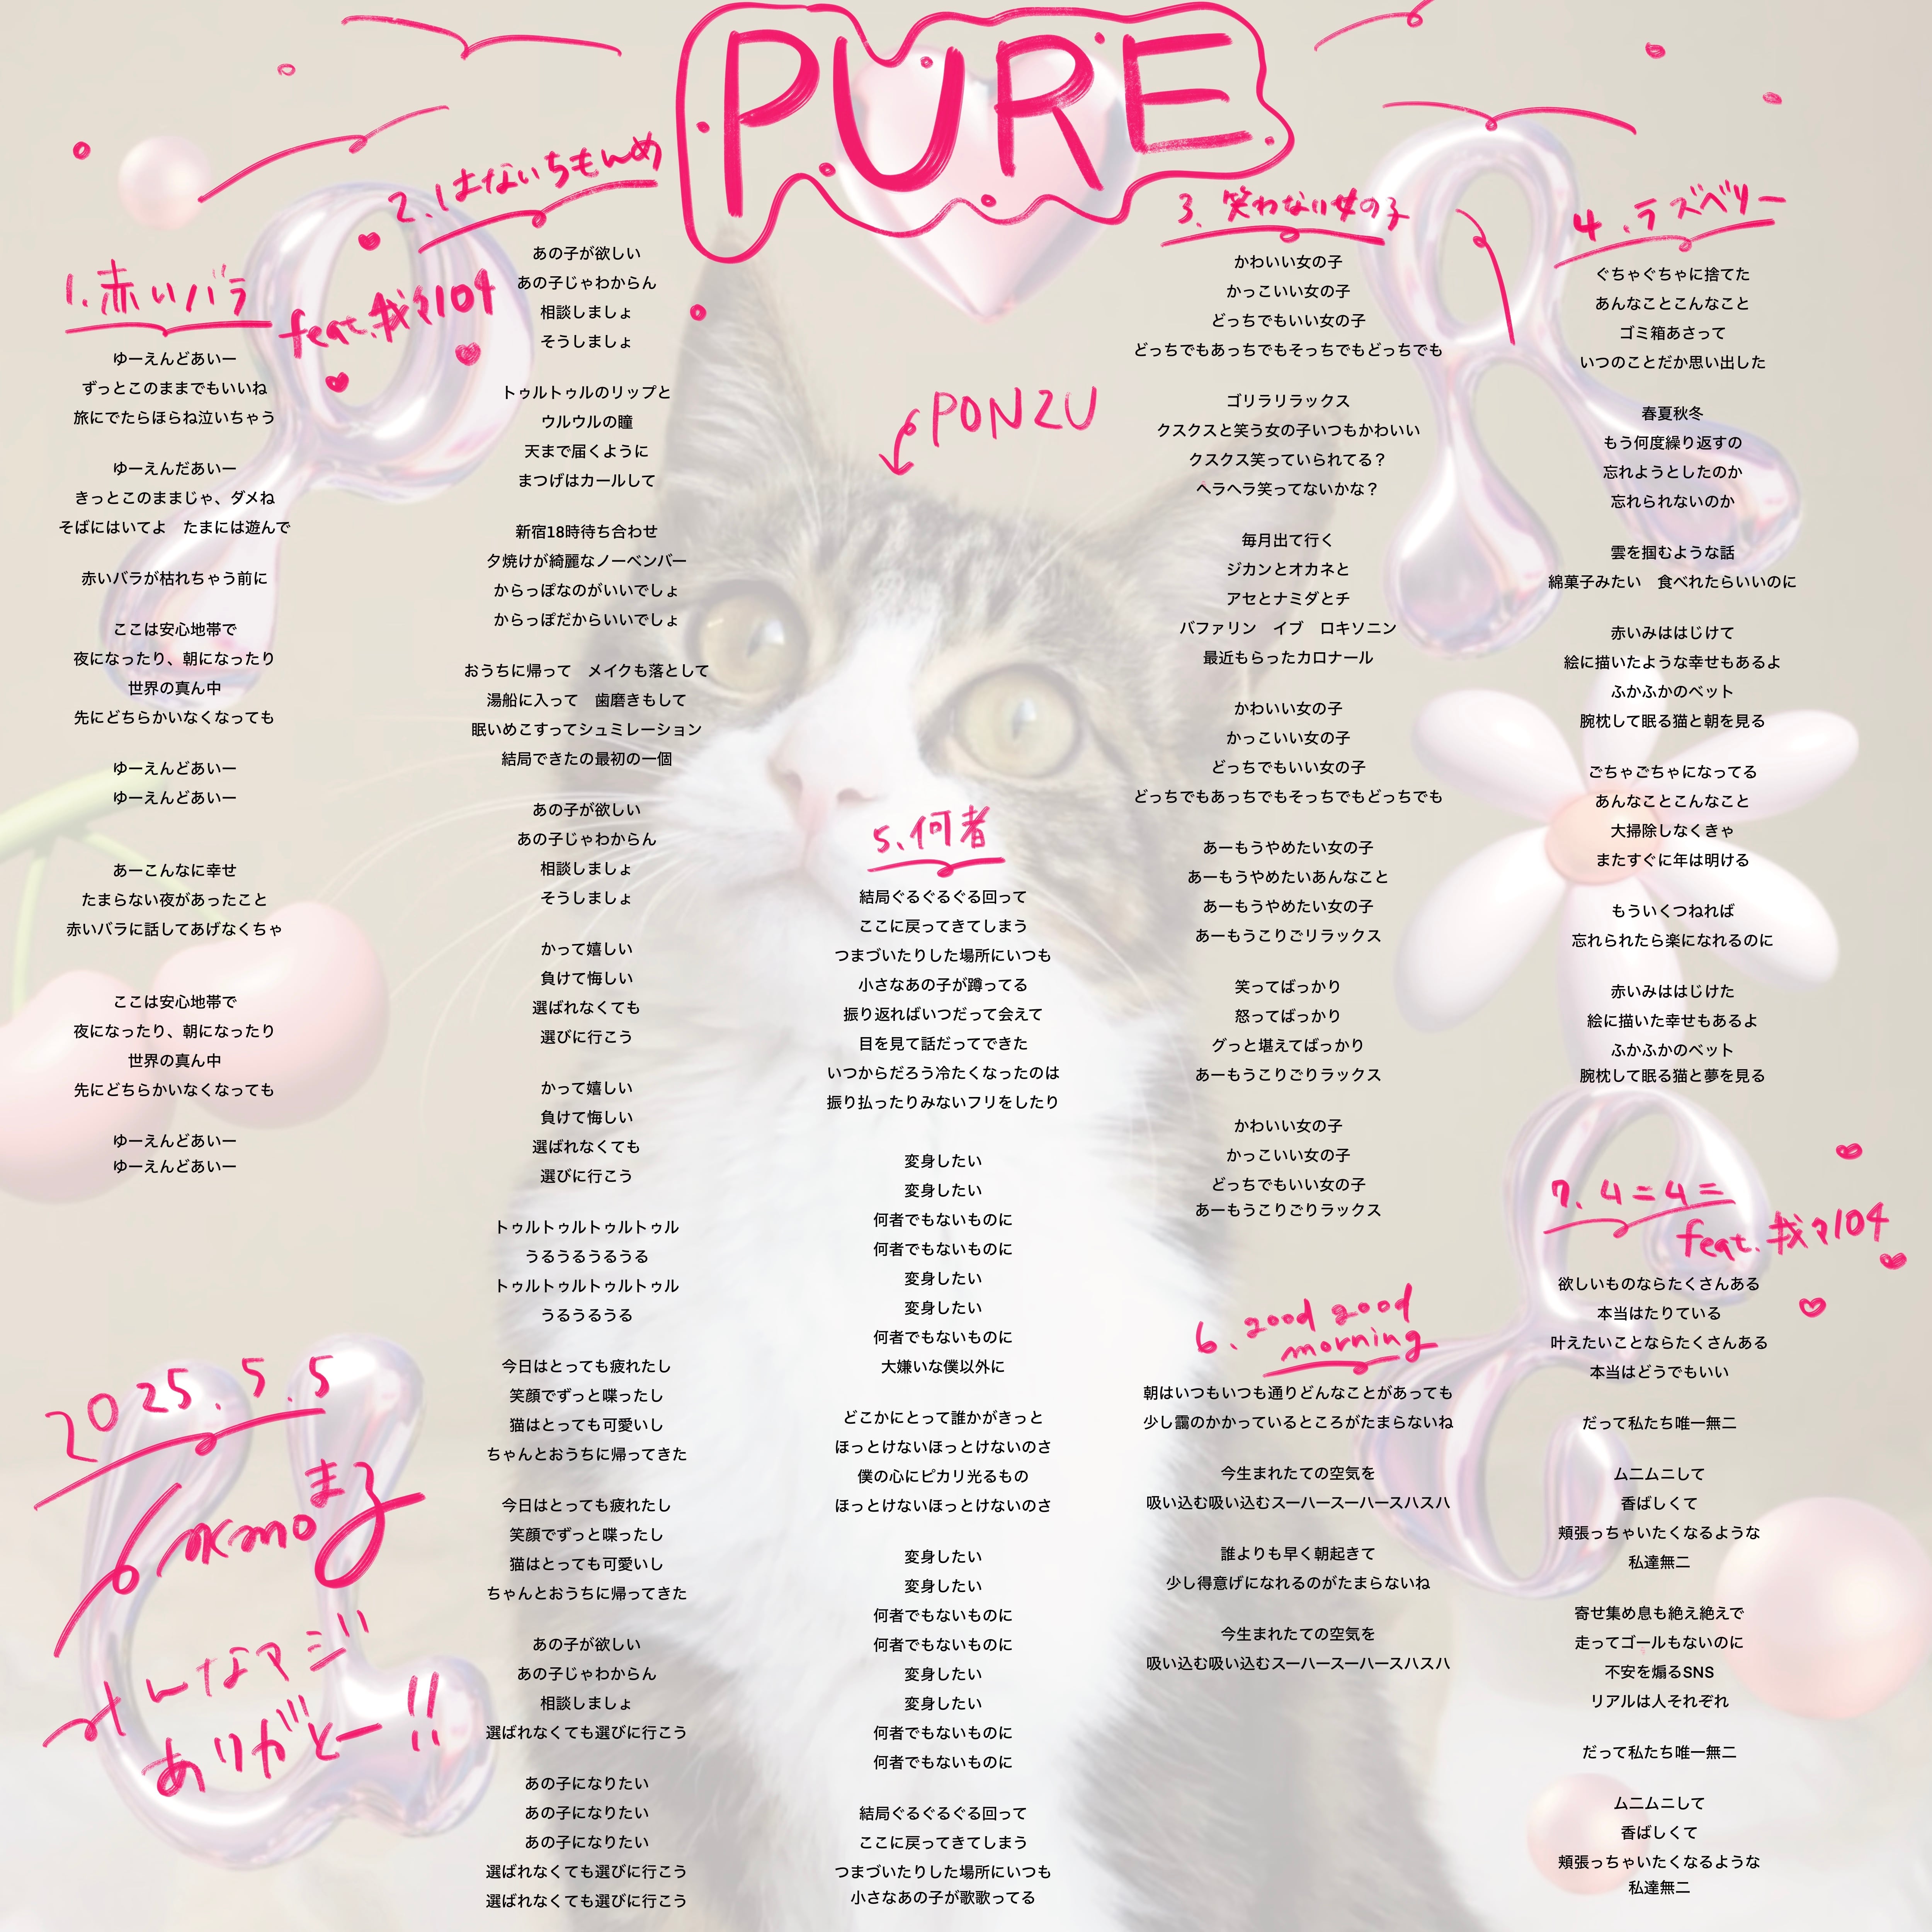 PURE
1.赤いバラ
feat.我々104
ゆーえんどあいー
ずっとこのままでもいいね
旅にでたらほらね泣いちゃう
ゆーえんだあいー
きっとこのままじゃ、ダメね
そばにはいてよ　たまには遊んで
赤いバラが枯れちゃう前に
ここは安心地帯で
夜になったり、朝になったり
世界の真ん中
先にどちらかいなくなっても
ゆーえんどあいー
ゆーえんどあいー
あーこんなに幸せ
たまらない夜があったこと
赤いバラに話してあげなくちゃ
ここは安心地帯で
夜になったり、朝になったり
世界の真ん中
先にどちらかいなくなっても
ゆーえんどあいー
ゆーえんどあいー
2.はないちもんめ
あの子が欲しい
あの子じゃわからん
相談しましょ
そうしましょ
トゥルトゥルのリップと
ウルウルの瞳
天まで届くように
まつげはカールして
新宿18時待ち合わせ
夕焼けが綺麗なノーベンバー
からっぽなのがいいでしょ
からっぽだからいいでしょ
おうちに帰って　メイクも落として
湯船に入って　歯磨きもして
眠いめこすってシュミレーション
結局できたの最初の一個
あの子が欲しい
あの子じゃわからん
相談しましょ
そうしましょ
かって嬉しい
負けて悔しい
選ばれなくても
選びに行こう
かって嬉しい
負けて悔しい
選ばれなくても
選びに行こう
トゥルトゥルトゥルトゥル
うるうるうるうる
トゥルトゥルトゥルトゥル
うるうるうる
今日はとっても疲れたし
笑顔でずっと喋ったし
猫はとっても可愛いし
ちゃんとおうちに帰ってきた
今日はとっても疲れたし
笑顔でずっと喋ったし
猫はとっても可愛いし
ちゃんとおうちに帰ってきた
あの子が欲しい
あの子じゃわからん
相談しましょ
選ばれなくても選びに行こう
あの子になりたい
あの子になりたい
あの子になりたい
選ばれなくても選びに行こう
選ばれなくても選びに行こう
PONZU
3.笑わない女の子
かわいい女の子
かっこいい女の子
どっちでもいい女の子
どっちでもあっちでもそっちでもどっちでも
ゴリラリラックス
クスクスと笑う女の子いつもかわいい
クスクス笑っていられてる？
ヘラヘラ笑ってないかな？
毎月出て行く
ジカンとオカネと
アセとナミダとチ
バファリン　イブ　ロキソニン
最近もらったカロナール
かわいい女の子
かっこいい女の子
どっちでもいい女の子
どっちでもあっちでもそっちでもどっちでも
あーもうやめたい女の子
あーもうやめたいあんなこと
あーもうやめたい女の子
あーもうこりごリラックス
笑ってばっかり
怒ってばっかり
グっと堪えてばっかり
あーもうこりごりラックス
かわいい女の子
かっこいい女の子
どっちでもいい女の子
あーもうこりごりラックス
4.ラズベリー
ぐちゃぐちゃに捨てた
あんなことこんなこと
ゴミ箱あさって
いつのことだか思い出した
春夏秋冬
もう何度繰り返すの
忘れようとしたのか
忘れられないのか
雲を掴むような話
綿菓子みたい　食べれたらいいのに
赤いみははじけて
絵に描いたような幸せもあるよ
ふかふかのベット
腕枕して眠る猫と朝を見る
ごちゃごちゃになってる
あんなことこんなこと
大掃除しなくきゃ
またすぐに年は明ける
もういくつねれば
忘れられたら楽になれるのに
赤いみははじけた
絵に描いた幸せもあるよ
ふかふかのベット
腕枕して眠る猫と夢を見る
5.何者
結局ぐるぐるぐる回って
ここに戻ってきてしまう
つまづいたりした場所にいつも
小さなあの子が蹲ってる
振り返ればいつだって会えて
目を見て話だってできた
いつからだろう冷たくなったのは
振り払ったりみないフリをしたり
変身したい
変身したい
何者でもないものに
何者でもないものに
変身したい
変身したい
何者でもないものに
大嫌いな僕以外に
どこかにとって誰かがきっと
ほっとけないほっとけないのさ
僕の心にピカリ光るもの
ほっとけないほっとけないのさ
変身したい
変身したい
何者でもないものに
何者でもないものに
変身したい
変身したい
何者でもないものに
何者でもないものに
結局ぐるぐるぐる回って
ここに戻ってきてしまう
つまづいたりした場所にいつも
小さなあの子が歌歌ってる
6.good good
morning
朝はいつもいつも通りどんなことがあっても
少し靄のかかっているところがたまらないね
今生まれたての空気を
吸い込む吸い込むスーハースーハースハスハ
誰よりも早く朝起きて
少し得意げになれるのがたまらないね
今生まれたての空気を
吸い込む吸い込むスーハースーハースハスハ
7.4=4=
feat.我々104
欲しいものならたくさんある
本当はたりている
叶えたいことならたくさんある
本当はどうでもいい
だって私たち唯一無二
ムニムニして
香ばしくて
頬張っちゃいたくなるような
私達無二
寄せ集め息も絶え絶えで
走ってゴールもないのに
不安を煽るSNS
リアルは人それぞれ
だって私たち唯一無二
ムニムニして
香ばしくて
頬張っちゃいたくなるような
私達無二
2025.5.5
みんなマジ
ありがとー!!